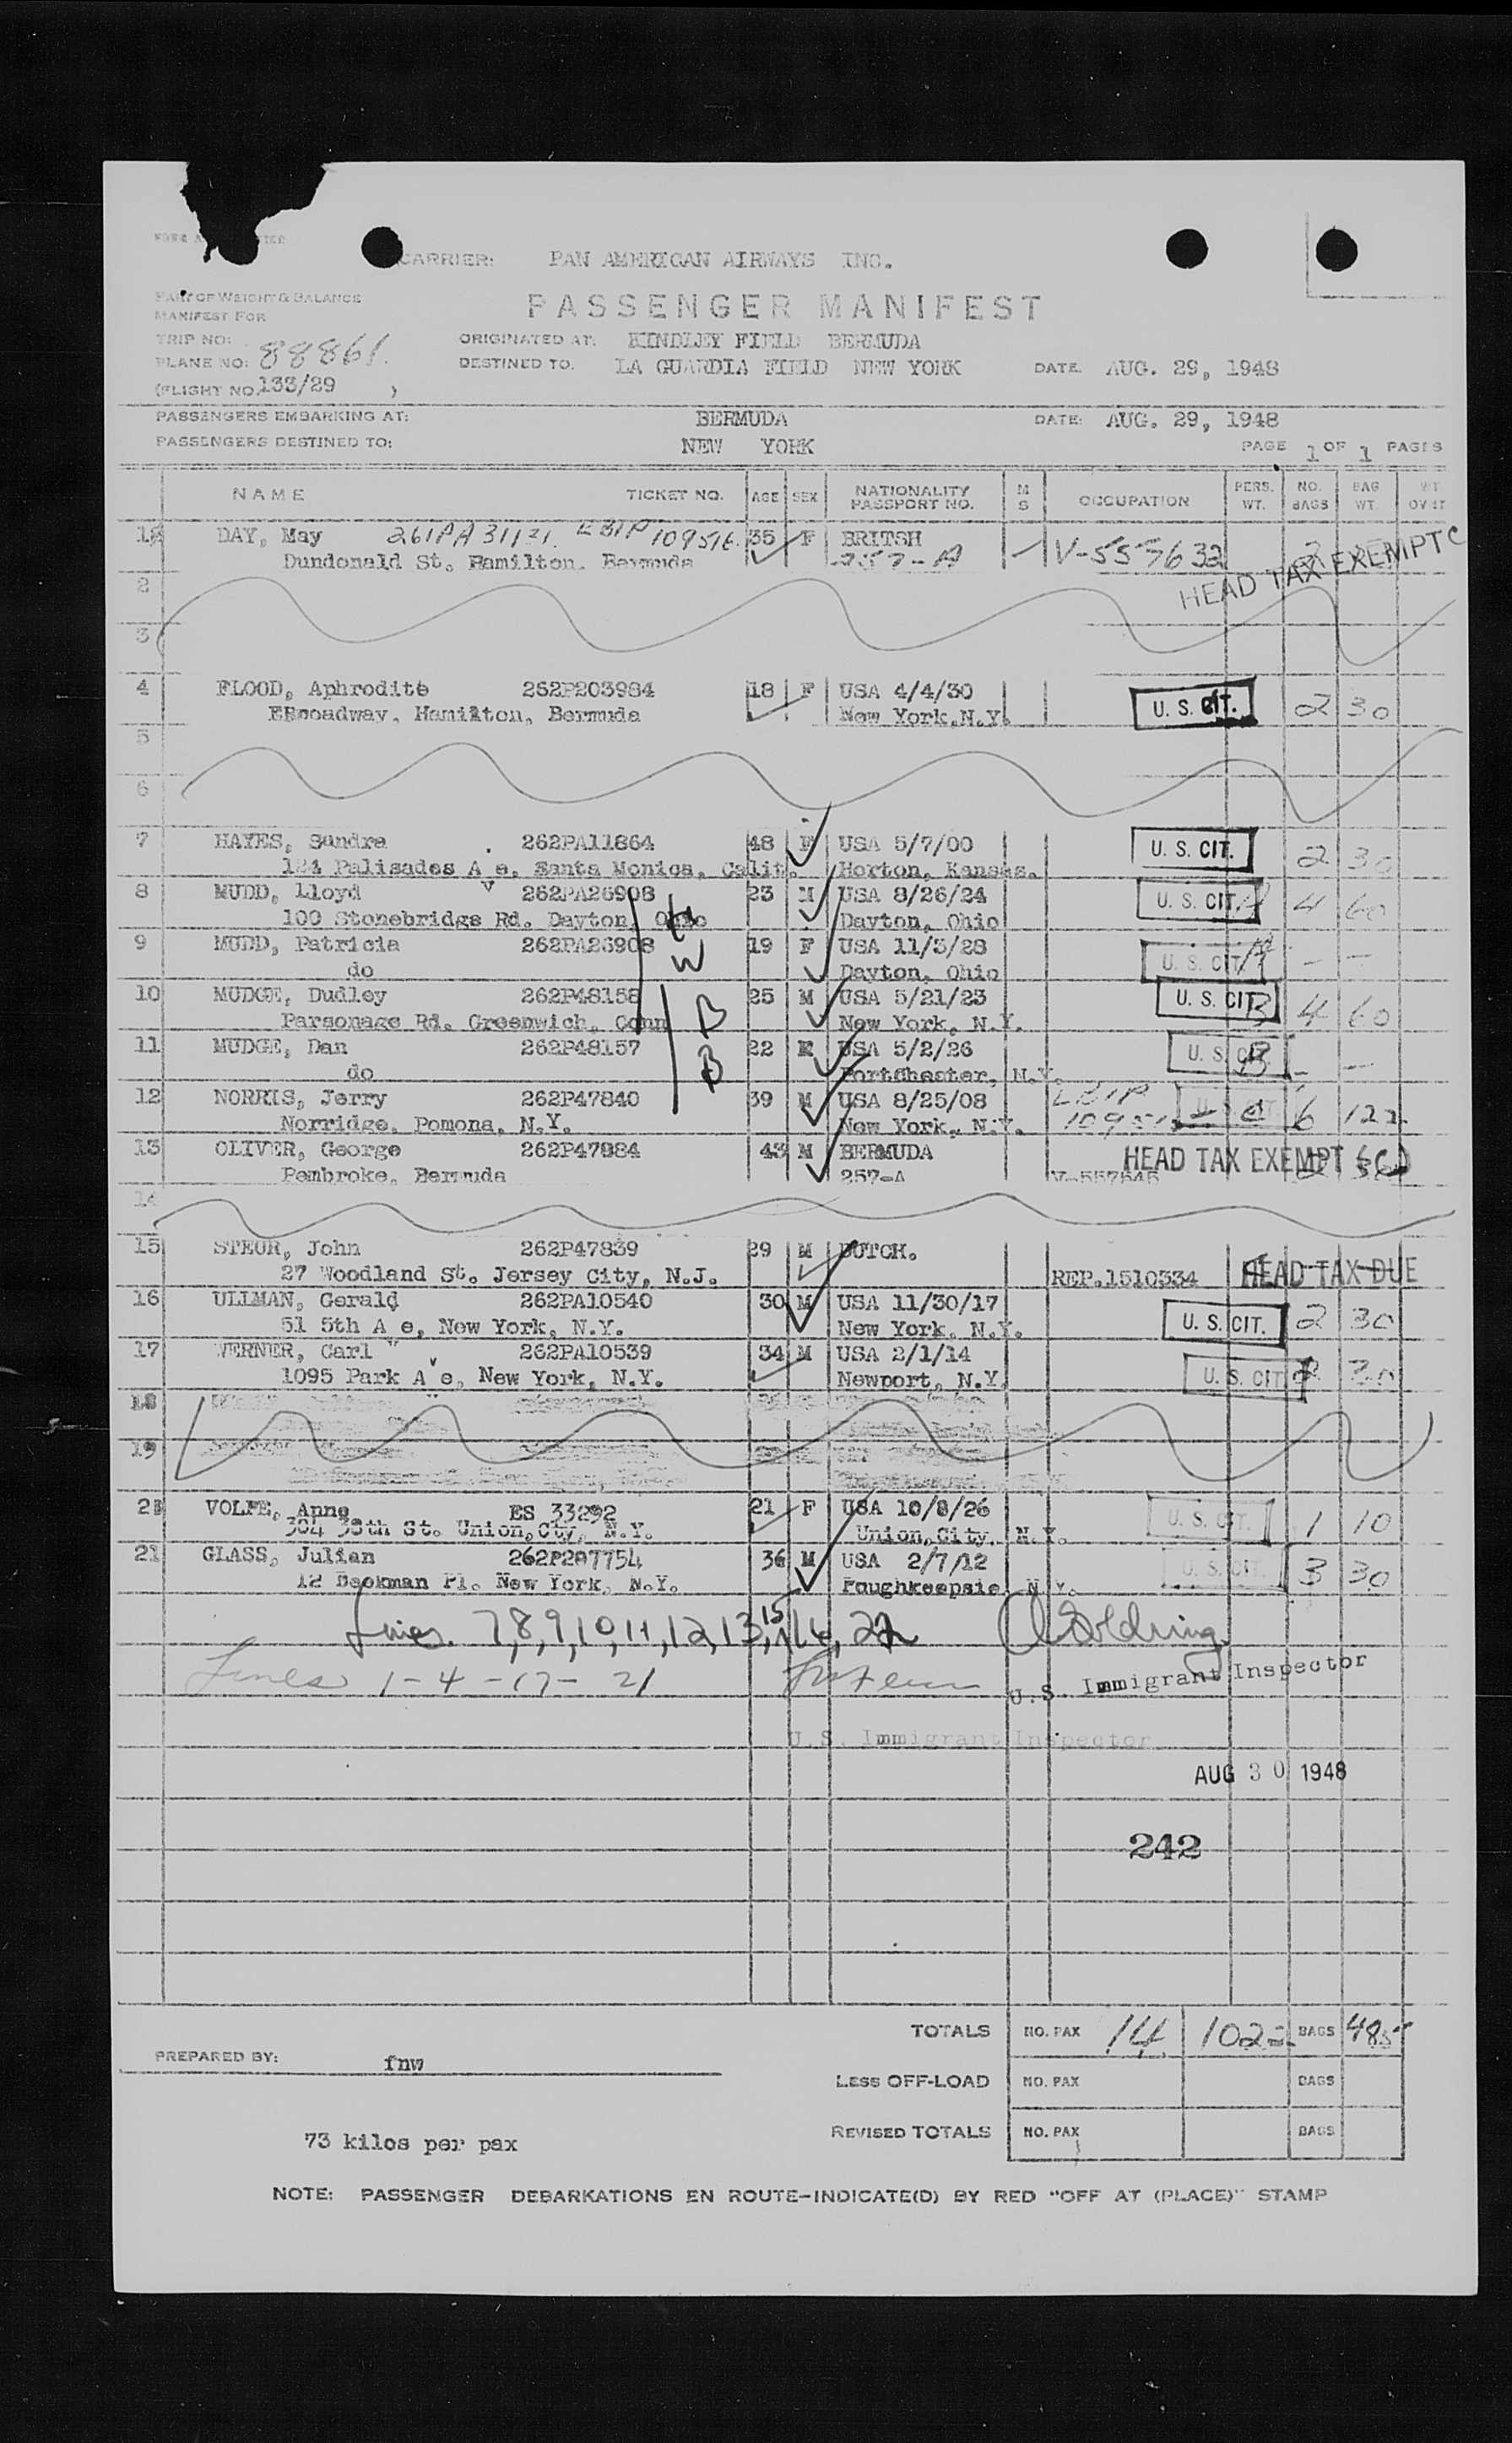 CARRIER: PAN AMERICAN AIRWAYS INC.
PART OF WEIGHT & BALANCE
MANIFEST FOR
PASSENGER MANIFEST
TRIP NO:
PLANE NO: 88861
(FLIGHT NO. 133/29 )
ORIGINATED AT: KINDLEY FIELD BERMUDA
DESTINED TO: LA GUARDIA FIELD NEW YORK DATE: AUG. 29, 1948
PASSENGERS EMBARKING AT: BERMUDA DATE: AUG. 29, 1948
PASSENGERS DESTINED TO: NEW YORK PAGE 1 OF 1 PAGES
NAME TICKET NO. AGE SEX NATIONALITY PASSPORT NO. M S OCCUPATION PERS. WT. NO. BAGS BAG WT.
1 DAY, May 35 F BRITSH V-557632
Dundonald St. Hamilton. Bermuda 257-A HEAD TAX EXEMPT C
2
3
4 FLOOD, Aphrodite 262P203984 18 F USA 4/4/30 U. S. CIT. 2 30
Hamilton, Bermuda New York,N.Y.
5
6
7 HAYES, Sandra 262PA11864 48 F USA 5/7/00 U. S. CIT. 2 30
124 Palisades A e, Santa Monica, Calif. Horton, Kansas.
8 MUDD, Lloyd 262PA26908 H 23 M USA 8/26/24 U. S. CIT. 4 60
100 Stonebridge Rd. Dayton, Ohio Dayton, Ohio
9 MUDD, Patricia 262PA26908 W 19 F USA 11/3/28 U. S. CIT. — —
do Dayton, Ohio
10 MUDGE, Dudley 262P48158 B 25 M USA 5/21/23 U. S. CIT. 4 60
Parsonage Rd. Greenwich, Conn New York, N.Y.
11 MUDGE, Dan 262P48157 B 22 M USA 5/2/26 U. S. CIT. — —
do PortChester, N.Y.
12 NORRIS, Jerry 262P47840 39 M USA 8/25/08 U. S. CIT. 6 122
Norridge, Pomona, N.Y. New York, N.Y.
13 OLIVER, George 262P47984 43 M BERMUDA HEAD TAX EXEMPT
Pembroke, Bermuda 257-A V-557545
14
15 STEUR, John 262P47839 29 M DUTCH. HEAD TAX DUE
27 Woodland St. Jersey City, N.J. REP.1510534
16 ULLMAN, Gerald 262PA10540 30 M USA 11/30/17 U. S. CIT. 2 30
51 5th A e, New York, N.Y. New York, N.Y.
17 WERNER, Carl 262PA10539 34 M USA 2/1/14 U. S. CIT. 2 30
1095 Park A v e, New York, N.Y. Newport, N.Y.
18
19
VOLPE, Anne ES 33292 21 F USA 10/8/26 U. S. CIT. 1 10
304 38th St. Union,Cty, N.Y. Union,City, N.Y.
21 GLASS, Julian 36 M USA 2/7/12 U. S. CIT. 3 30
12 Beekman Pl. New York, N.Y. Poughkeepsie, N.Y.
Lines 7,8,9,10,11,12,13,15,16,
Lines 1-4-17-21
U.S. Immigrant Inspector
U.S. Immigrant Inspector
AUG 30 1948
242
TOTALS NO. PAX 14 1022 BAGS 485
PREPARED BY: fnw
LESS OFF-LOAD NO. PAX BAGS
REVISED TOTALS NO. PAX BAGS
73 kilos per pax
NOTE: PASSENGER DEBARKATIONS EN ROUTE-INDICATE(D) BY RED "OFF AT (PLACE)" STAMP